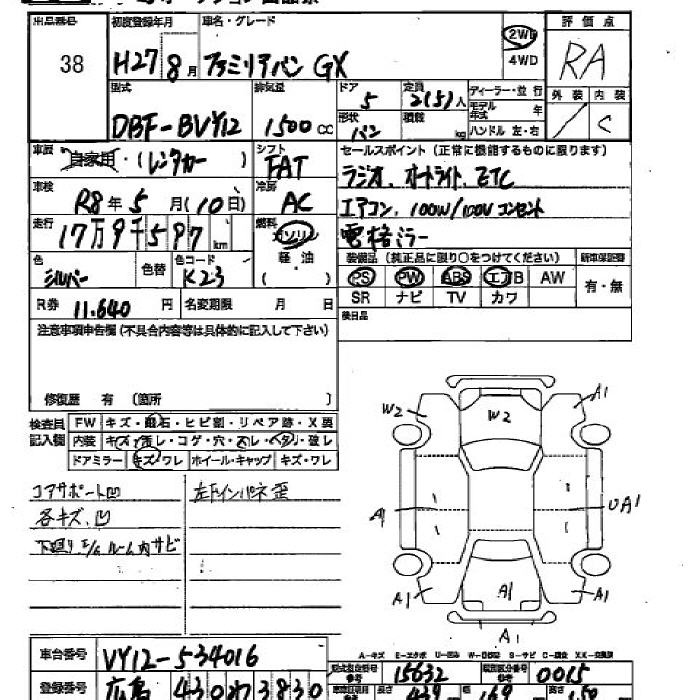 出品番号 初度登録年月 車名・グレード 評価点
38 H27 8月 ファミリアバン GX 2WD 4WD RA
型式 排気量 ドア 定員 ディーラー・並行 外装 内装
DBF-BVY12 1500cc 5 2(5)人 モデル年式 年 / C
形状 バン 積載 kg ハンドル 左・右
車歴 自家用・(レンタカー) シフト FAT セールスポイント (正常に機能するものに限ります)
車検 R8年5月(10日) 冷房 AC ラジオ、オートライト、ETC
走行 17万9千597km 燃料 ガソリン 軽油 ( ) エアコン、100W/100Vコンセント
電格ミラー
色 シルバー 色替 色コード K23 装備品 (純正品に限り○をつけてください) 新車保証書
PS PW ABS エアB AW 有・無
SR ナビ TV カワ
R券 11.640円 名変期限 月 日 後日品
注意事項申告欄 (不具合内容等は具体的に記入して下さい)
修復歴 有 (箇所 )
検査員記入欄 FW キズ・飛石・ヒビ割・リペア跡・X要
内装 キズ・汚レ・コゲ・穴・スレ・ヘタリ・破レ
ドアミラー キズ・ワレ ホイール・キャップ キズ・ワレ
コアサポート凹 左Fインパネ歪
各キズ、凹
下廻り E/G ルーム内サビ
W2 W2 A1
A1 UA1
A1 A1 A1
A1
A-キズ E-エクボ U-凹み W-波 S-サビ C-腐食 XX-交換済
車台番号 VY12-534016
登録番号 広島 430わ3830
型式指定番号 参考 15632 類別区分番号 参考 0015
長さ 439 幅 169 高さ 150